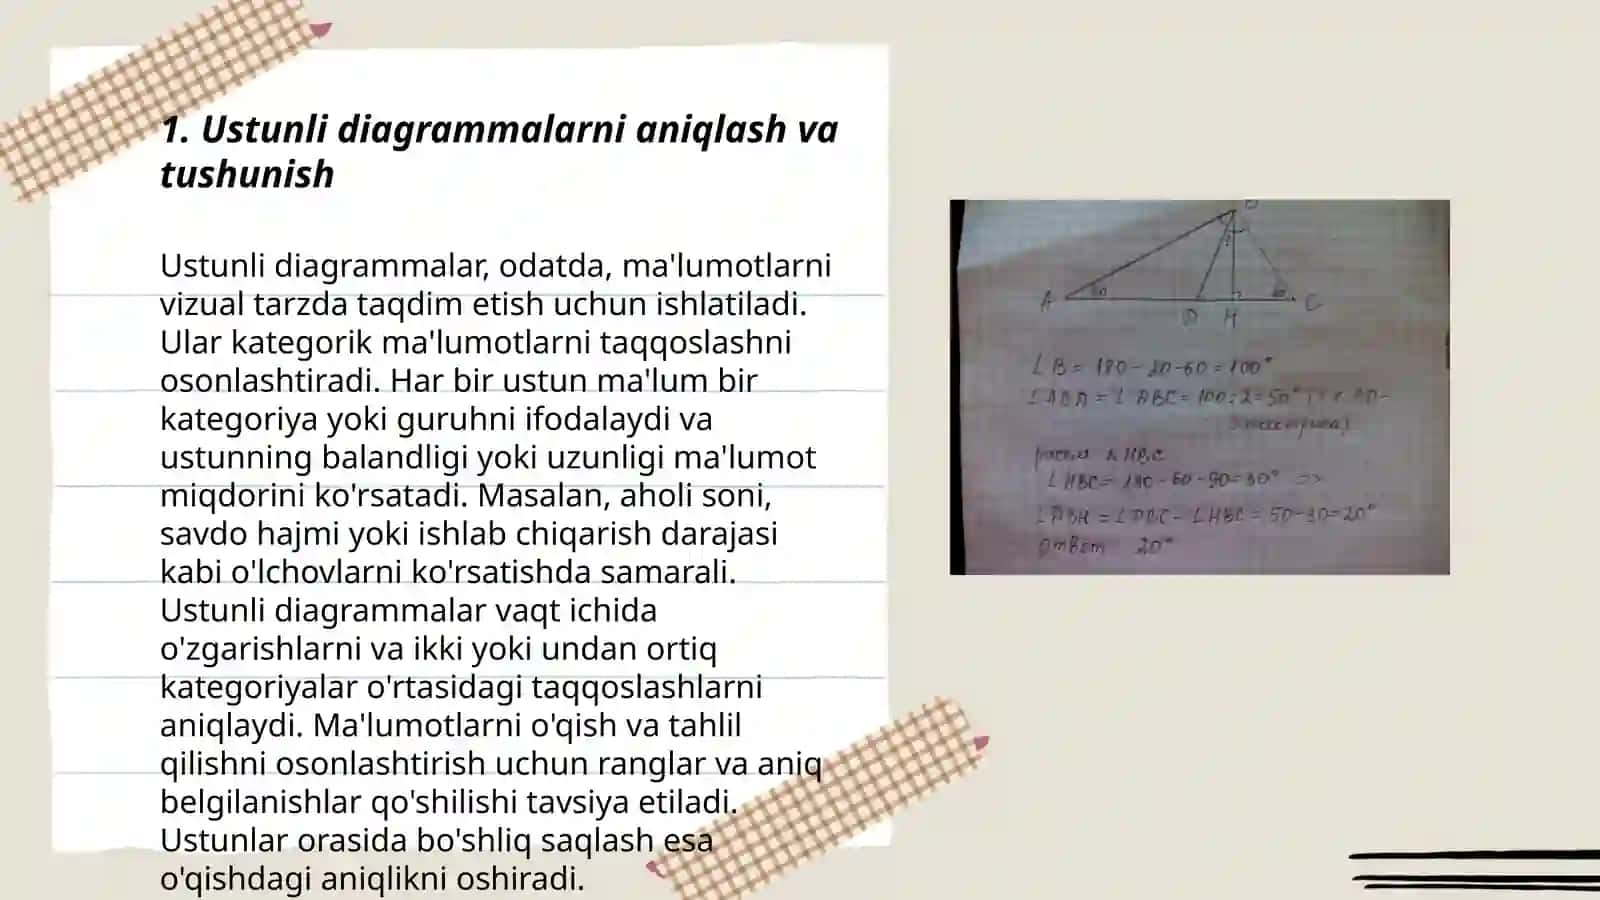 1. Ustunli diagrammalarni aniqlash va
tushunish
Ustunli diagrammalar, odatda, ma'lumotlarni
vizual tarzda taqdim etish uchun ishlatiladi.
Ular kategorik ma'lumotlarni taqqoslashni
osonlashtiradi. Har bir ustun ma'lum bir
kategoriya yoki guruhni ifodalaydi va
ustunning balandligi yoki uzunligi ma'lumot
miqdorini ko'rsatadi. Masalan, aholi soni,
savdo hajmi yoki ishlab chiqarish darajasi
kabi o'lchovlarni ko'rsatishda samarali.
Ustunli diagrammalar vaqt ichida
o'zgarishlarni va ikki yoki undan ortiq
kategoriyalar o'rtasidagi taqqoslashlarni
aniqlaydi. Ma'lumotlarni o'qish va tahlil
qilishni osonlashtirish uchun ranglar va aniq
belgilanishlar qo'shilishi tavsiya etiladi.
Ustunlar orasida bo'shliq saqlash esa
o'qishdagi aniqlikni oshiradi.
A
D H
C
∠B = 180 - 20 - 60 = 100°
= 100 : 2 = 50°
∠HBC = 180 - 60 - 90 = 30° =>
∠DBH = ∠DBC - ∠HBC = 50 - 30 = 20°
Ответ 20°